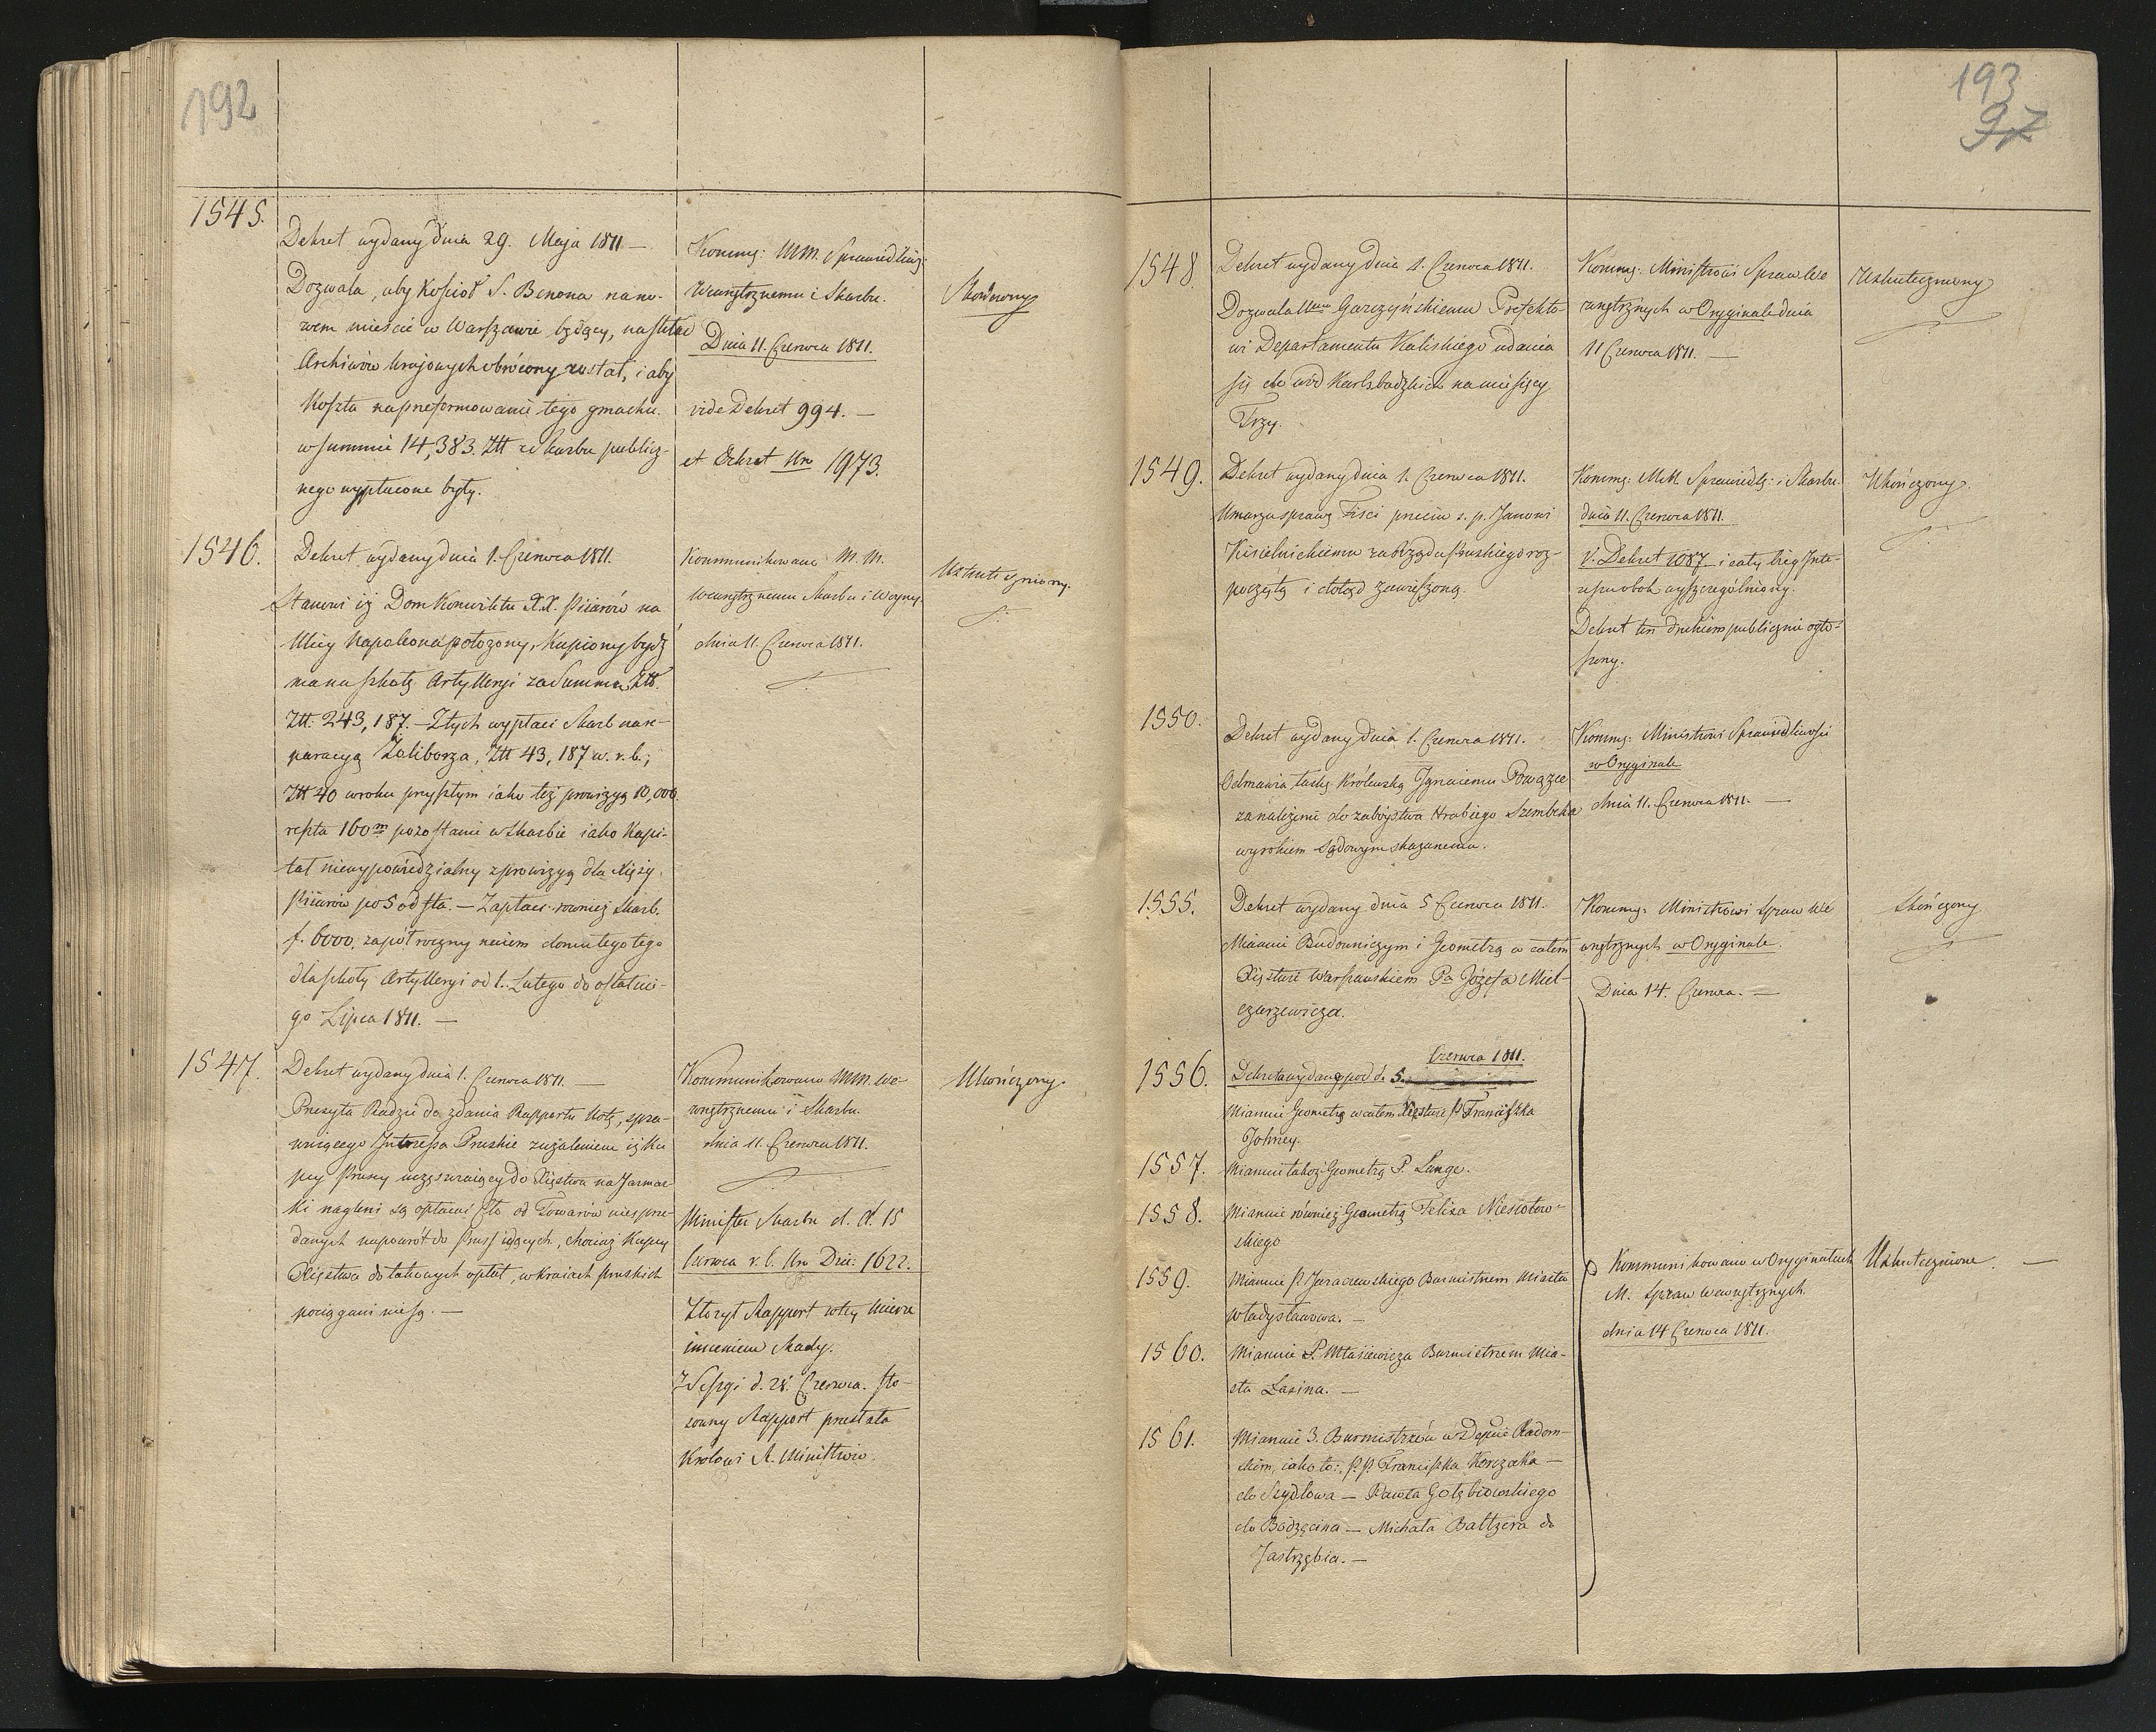 192
1545.
Dekret wydany dnia 29. Maja 1811 —
Dozwala, aby Kościoł S. Benona na no-
wem mieście w Warszawie będący, na skład
Archiwów krajowych obrócony został, i aby
Koszta na przeformowanie tego gmachu.
w summie 14,383. Złł ze skarbu publicz-
nego wypłacone były.
Kommg: MM. Sprawiedliwś:
Wewnętrznemu i Skarbu.
Dnia 11. Czerwca 1811.
vide Dekret 994. —
et Dekret Nro 1973.
Skończony
1546.
Dekret wydany dnia 1. Czerwca 1811.
Stanowi iż Dom Konwiktu X.X. Piiarów na
Ulicy Napoleona położony, Kupiony bydź
ma na szkołę Artylleryi za Summę Złł.
Złł. 243,187. — Z tych wypłaci Skarb na re-
paracyą Żoliborza, Złł 43,187 w. r. b.;
Złł 40 w roku przyszłym iako też prowizyą 10,000.
reszta 160m pozostanie w skarbie iako Kapi-
tał niewypowiedzialny z prowizyą dla Xięży
Piiarów po 5 od sta. — Zapłaci rownież Skarb.
f. 6000. za pół roczny naiem domu tego
dla szkoły Artylleryi od 1. Lutego do ostatnie-
go Lipca 1811. —
Kommunikowano M. M.
Wewnętrznemu Skarbu i Woyny.
dnia 11. Czerwca 1811.
Uskuteczniony.
1547.
Dekret wydany dnia 1. Czerwca 1811. —
Przesyła Radzie do zdania Rapportu Notę, spra-
wuiącego Interessa Pruskie z użaleniem iż ku-
pcy Pruscy uczęszczaiący do Xięstwa na Jarmar-
ki nagleni są opłacać Cło od Towarów niesprze-
danych napowrót do Pruss idących, chociaż Kupcy
Xięstwa do takowych opłat, w kraiach pruskich
pociągani nie są. —
Kommunikowano MM. We-
wnętrznemu i Skarbu.
dnia 11. Czerwca 1811.
Minister Skarbu d. d. 15
Czerwca r. b. Nro Dzie: 1622.
Złożył Rapport w tey mierze
imieniem Rady.
Z Sessyi d. 28. Czerwca. sto-
sowny Rapport przesłała
Krolowi R. Ministrów.
Ukończony.
193
97
1548.
Dekret wydany dnia 1. Czerwca 1811.
Dozwala Garczyńskiemu Prefekto-
wi Departamentu Kaliskiego udania
się do wód Karlsbadzkich na miesięcy
Trzy.
Kommg: Ministrowi Spraw We
wnętrznych w Oryginale dnia
11 Czerwca 1811. —
Uskuteczniony
1549.
Dekret wydany dnia 1. Czerwca 1811.
Umarza sprawę Fisci przeciw s. p. Janowi
Kisielnickiemu za Rządu Pruskiego roz-
poczętą i dotąd zawieszoną.
Kommg: M.M. Sprawiedlg: i Skarbu.
dnia 11. Czerwca 1811.
V. Dekret 1087 — i cały bieg Inte-
ressu obok wyszczególniony.
Dekret ten drukiem publicznie ogło-
szony.
Ukończony.
1550.
Dekret wydany dnia 1. Czerwca 1811.
Odmawia łaskę Królewską Ignacemu Powązce
za należenie do zabójstwa Hrabiego Szembeka
wyrokiem Sądowym skazanemu.
Kommg: Ministrowi Sprawiedliwości
w Oryginale
dnia 11. Czerwca 1811. —
1555.
Dekret wydany dnia 5 Czerwca 1811.
Mianuie Budowniczym i Geometrą w całém
Xięstwie Warszawskiem Pa Józefa Miel-
czarzewicza.
Kommg: Ministrowi Spraw We
wnętrznych w Oryginale.
Dnia 14. Czerwca. —
Skończony
1556.
Czerwca 1811.
Dekreta wydane pod d. 5.
Mianuie Geometrą w całem Xięstwie P Franciszka
Johney.
1557.
Mianuie takoż Geometrą P. Lange.
1558.
Mianuie również Geometrą Felixa Niesiołow-
skiego
1559.
Mianuie P. Jaraczewskiego Burmistrzem Miasta
Władysławowa. —
1560.
Mianuie P. Własiewicza Burmistrzem Mia-
sta Łasina. —
1561.
Mianuie 3. Burmistrzów w Depcie Radom-
skim, iako to: P. P. Franciszka Korczaka —
do Szydłowa — Pawła Gołębiowskiego
do Bodzęcina — Michała Baltzera do
Jastrzębia. —
Kommunikowano w Oryginałach
M. Spraw Wewnętrznych.
dnia 14 Czerwca 1811.
Uskutecznione. —